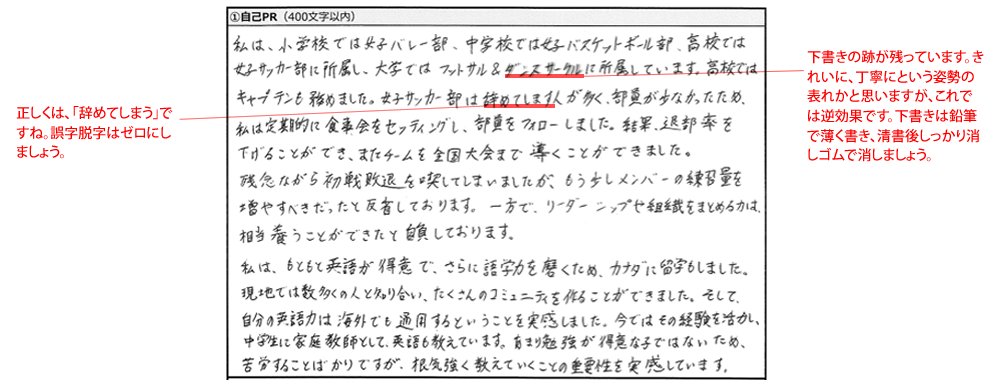 ①自己PR（400文字以内）
私は、小学校では女子バレー部、中学校では女子バスケットボール部、高校では
女子サッカー部に所属し、大学ではフットサル&ダンスサークルに所属しています。高校では
キャプテンも務めました。女子サッカー部は辞めてします人が多く、部員が少なかったため、
私は定期的に食事会をセッティングし、部員をフォローしました。結果、退部率を
下げることができ、またチームを全国大会まで導くことができました。
残念ながら初戦敗退を喫してしまいましたが、もう少しメンバーの練習量を
増やすべきだったと反省しております。一方で、リーダーシップや組織をまとめる力は、
相当養うことができたと自負しております。
私は、もともと英語が得意で、さらに語学力を磨くため、カナダに留学もしました。
現地では数多くの人と知り合い、たくさんのコミュニティを作ることができました。そして、
自分の英語力は海外でも通用するということを実感しました。今ではその経験を活かし、
中学生に家庭教師として、英語も教えています。あまり勉強が得意な子ではないため、
苦労することばかりですが、根気強く教えていくことの重要性を実感しています。
正しくは、「辞めてしまう」で
すね。誤字脱字はゼロにし
ましょう。
下書きの跡が残っています。き
れいに、丁寧にという姿勢の
表れかと思いますが、これで
は逆効果です。下書きは鉛筆
で薄く書き、清書後しっかり消
しゴムで消しましょう。